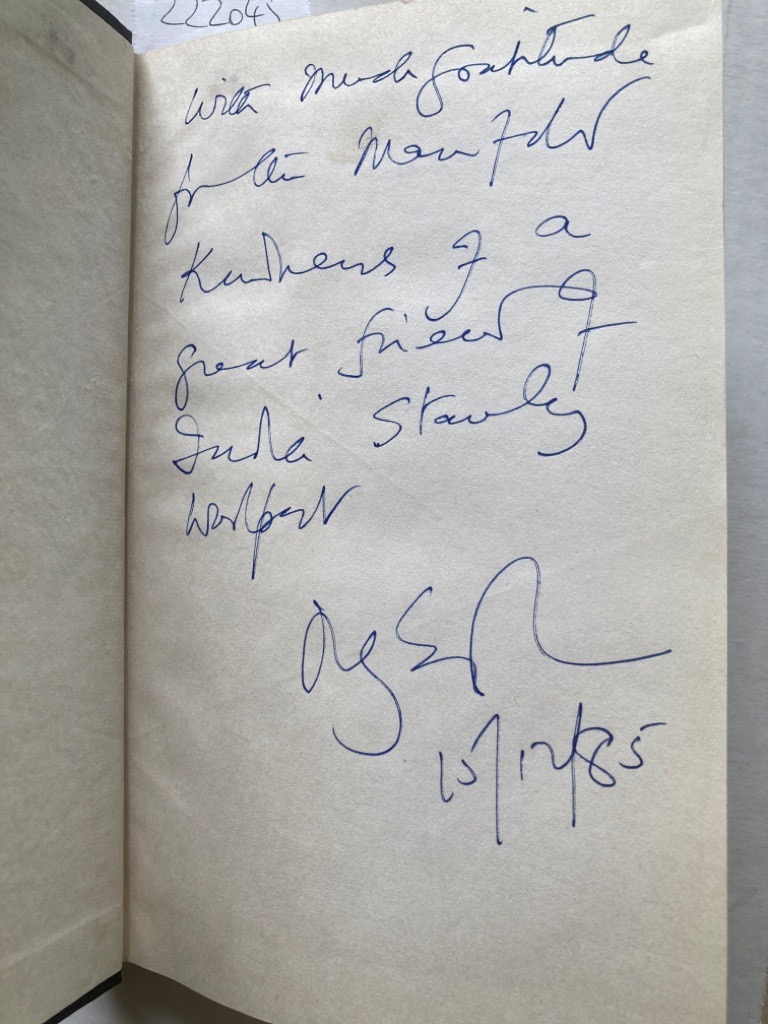 222045
with much gratitude
for the Manifold
Kindness of a
great friend of
India Stanley
Wolpert
15/12/85